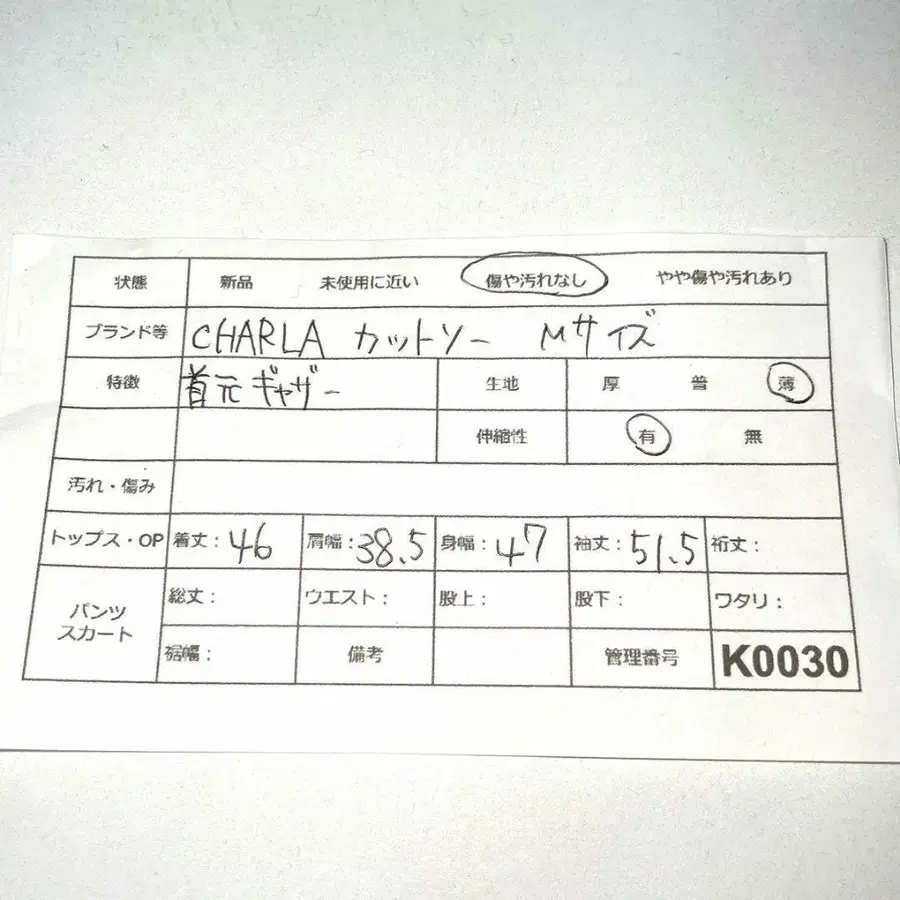 状態 新品 未使用に近い 傷や汚れなし やや傷や汚れあり
ブランド等 CHARLA カットソー Mサイズ
特徴 首元ギャザー 生地 厚 普 薄
伸縮性 有 無
汚れ・傷み
トップス・OP 着丈: 46 肩幅: 38.5 身幅: 47 袖丈: 51.5 裄丈:
パンツ スカート 総丈: ウエスト: 股上: 股下: ワタリ:
裾幅: 備考 管理番号 K0030